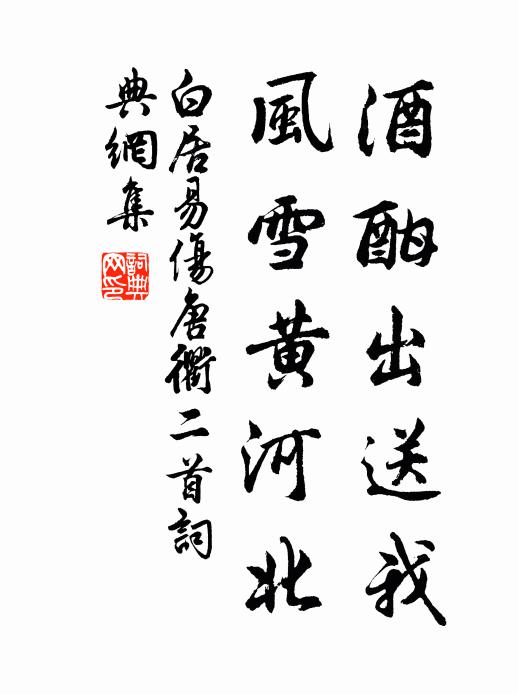 酒酣出送我
風雪黃河北
白居易傷唐衢二首詞
典網集
詞典网印